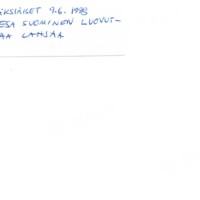 ÄKSIÄISET 9.6.1983
ESA SUOMINEN LUOVUT-
AA LAHJAA